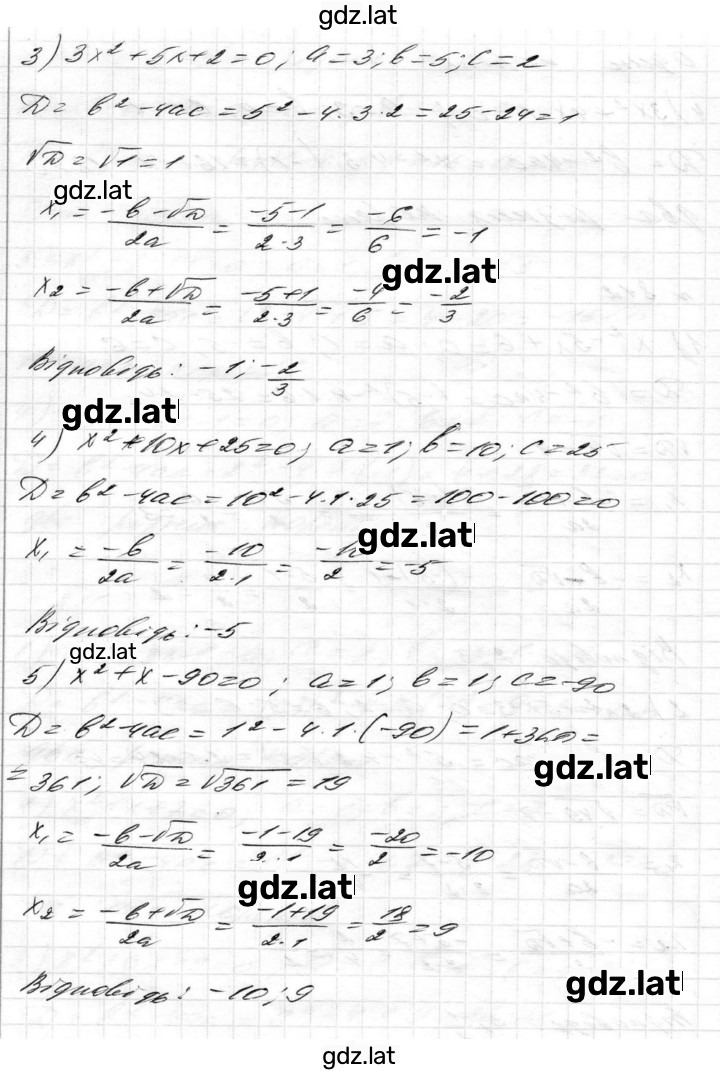 gdz.lat
3) 3x² + 5x + 2 = 0; a = 3; b = 5; c = 2
D = b² - 4ac = 5² - 4 · 3 · 2 = 25 - 24 = 1
√D = √1 = 1
gdz.lat
x₁ = (-b - √D)/2a = (-5 - 1)/(2 · 3) = -6/6 = -1
gdz.lat
x₂ = (-b + √D)/2a = (-5 + 1)/(2 · 3) = -4/6 = -2/3
Відповідь: -1; -2/3
gdz.lat
4) x² + 10x + 25 = 0; a = 1; b = 10; c = 25
D = b² - 4ac = 10² - 4 · 1 · 25 = 100 - 100 = 0
gdz.lat
x₁ = -b/2a = -10/(2 · 1) = -10/2 = -5
Відповідь: -5
gdz.lat
5) x² + x - 90 = 0; a = 1; b = 1; c = -90
D = b² - 4ac = 1² - 4 · 1 · (-90) = 1 + 360 =
gdz.lat
= 361; √D = √361 = 19
x₁ = (-b - √D)/2a = (-1 - 19)/(2 · 1) = -20/2 = -10
gdz.lat
x₂ = (-b + √D)/2a = (-1 + 19)/(2 · 1) = 18/2 = 9
Відповідь: -10; 9
gdz.lat
gdz.lat